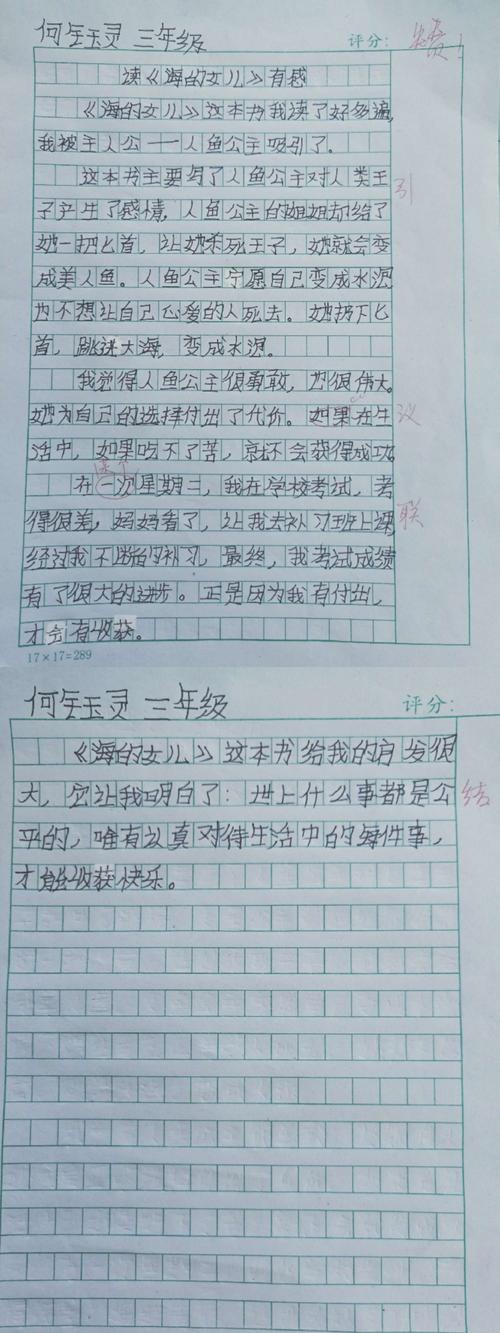 何钰灵 三年级 评分: 赞!
读《海的女儿》有感
《海的女儿》这本书我读了好多遍,
我被主人公——人鱼公主吸引了。
这本书主要写了人鱼公主对人类王 引
子产生了感情,人鱼公主的姐姐却给了
她一把匕首,让她杀死王子,她就会变
成美人鱼。人鱼公主宁愿自己变成水泡
也不想让自己心爱的人死去。她扔下匕
首,跳进大海,变成水泡。
我觉得人鱼公主很勇敢,也很伟大。
她为自己的选择付出了代价。如果在生 议
活中,如果吃不了苦,就不会获得成功。
某个
在一次星期二,我在学校考试,考
得很差,妈妈看了,让我去补习班上课, 联
经过我不断的补习,最终,我考试成绩
有了很大的进步。正是因为我有付出,
才会有收获。
17×17=289
何钰灵 三年级 评分:
《海的女儿》这本书给我的启发很
大,它让我明白了:世上什么事都是公 结
平的,唯有认真对待生活中的每件事,
才能收获快乐。